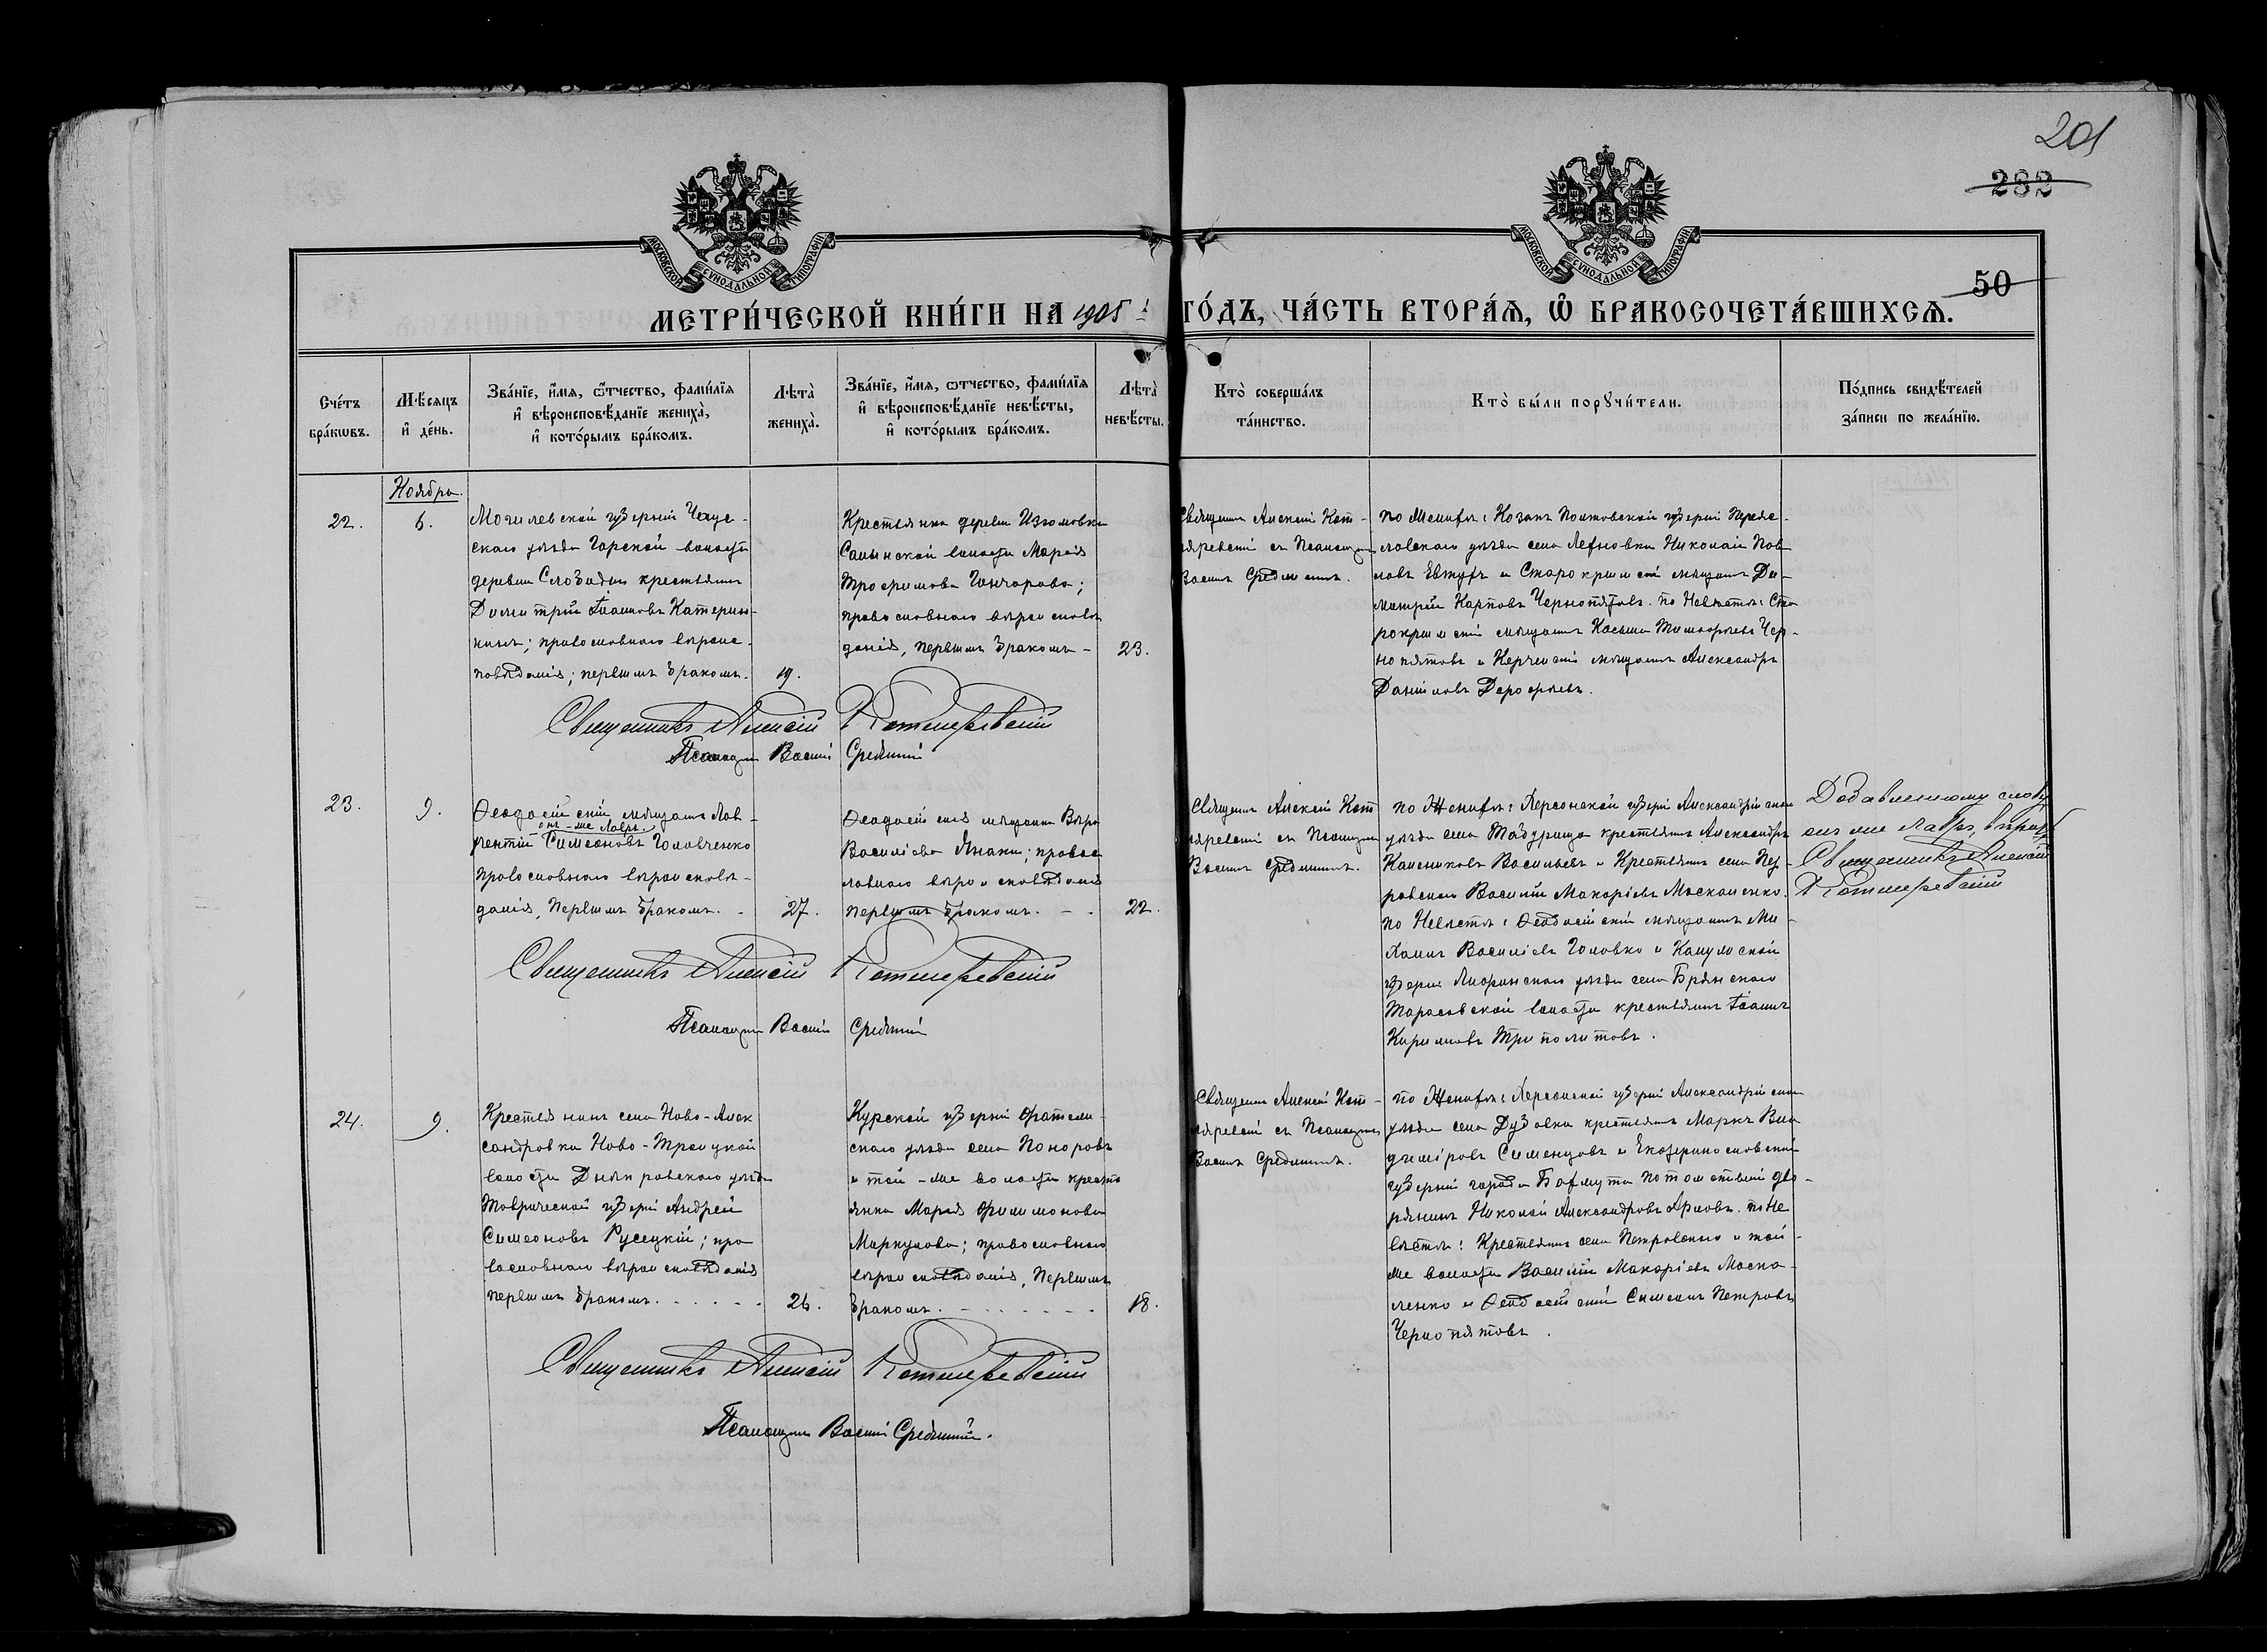 201
282
50
МОСКОВСКОЙ СѴНОДАЛЬНОЙ ТИПОГРАФІИ
МОСКОВСКОЙ СѴНОДАЛЬНОЙ ТИПОГРАФІИ
МЕТРИ́ЧЕСКОЙ КНИ́ГИ НА 1905 й ГО́ДЪ, ЧА́СТЬ ВТОРА́Я, Ѽ БРАКОСОЧЕТА́ВШИХСѦ.
Сче́тъ бра́кѡвъ.
Мѣ́сяцъ и҆ де́нь.
Зва́нїе, и҆́мя, ѻ҆́тчество, фами́лїя и҆ вѣроисповѣ́данїе жениха̀, и҆ кото́рымъ бра́комъ.
Лѣта̀ жениха̀.
Зва́нїе, и҆́мя, ѻ҆́тчество, фами́лїя и҆ вѣроисповѣ́данїе невѣ́сты, и҆ кото́рымъ бра́комъ.
Лѣта̀ невѣ́сты.
Кто̀ соверша́лъ та́инство.
Кто̀ бы́ли порꙋчи́тели.
По́дпись свидѣ́телей за́писи по жела́нїю.
Ноябрь.
22.
6.
Могилевской губерніи Чаус-
скаго уѣзда Горской волости
деревни Слободы крестьянинъ
Димитрій Іоанновъ Катерин-
кинъ; православнаго вѣроис-
повѣданія; первымъ бракомъ.
19.
Крестьянка деревни Изюмовки
Салынской волости Марія
Трофимова Гончарова;
православнаго вѣроисповѣ
данія, первымъ бракомъ –
23.
Священникъ Алексій Кот-
ляревскій съ Псаломщик
Васил. Средин
по Женихѣ: Козакъ Полтавской губерніи Переяс-
лавскаго уѣзда села Николай Пав
ловъ Евтухъ и Старокрымскій мѣщанинъ Ди-
митрій Карповъ Чернопятовъ. по Невѣстѣ: Ста
рокрымскій мѣщанинъ Косьма Тимофеевъ Чер-
нопятовъ и Керченскій мѣщанинъ Александръ
Даніиловъ Дорофѣевъ.
Священникъ Алексій Котляревскій
Псаломщик Василій
23.
9.
Ѳеодосійскій мѣщанинъ Лав-
онъ-же Лавръ
рентій Симеоновъ Головченко
православнаго вѣроисповѣ-
данія, первымъ бракомъ.
27.
Ѳеодосійская мѣщанка Вѣра
Василіева Янаки; правос
лавнаго вѣроисповѣданія
первымъ бракомъ.
22.
Священникъ Алексій Кот
ляревскій съ Псаломщик
по Женихѣ: Херсонской губерніи Александрійскаго
уѣзда села крестьянинъ Александръ
Васильевъ и Крестьянинъ села Пет-
ровскаго Василій Макаріевъ Москаленко.
по Невѣстѣ: Ѳеодосійскій мѣщанинъ Ми-
хаилъ Василіевъ Головко и Калужской
губерніи уѣзда села Брянскаго
Тарасовской волости крестьянинъ Іоаннъ
Кириловъ Триполитовъ.
Добавленному слову
онъ же Лавръ, вѣрить
Священникъ Алексій
Котляревскій
Священникъ Алексій Котляревскій
Псаломщик Василій
24.
9.
Крестьянинъ села Ново-Алек
сандровки Ново-Троицкой
волости Днѣпровскаго уѣзда
Таврической губерніи Андрей
Симеоновъ Русецкій; пра
вославнаго вѣроисповѣданія
первымъ бракомъ.
26.
Курской губерніи Фатеж-
скаго уѣзда села Поноровъ
и той-же волости кресть
янка Марія Филимонова
Меркулова; православнаго
вѣроисповѣданія, первымъ
бракомъ.
18.
Священникъ Алексій Кот-
ляревскій съ Псаломщик
по Женихѣ: Херсонской губерніи Александрійскаго
уѣзда села крестьянинъ Маркъ Вла
диміровъ Семенцовъ и Екатеринославской
губерніи города Бахмута потомственный дво-
рянинъ Николай Александровъ. по Не
вѣстѣ: Крестьянинъ села Петровскаго и той-
же волости Василій Макаріевъ Моска-
ленко и Ѳеодосійскій Симеонъ Петровъ
Чернопятовъ.
Священникъ Алексій Котляревскій
Псаломщик Василій